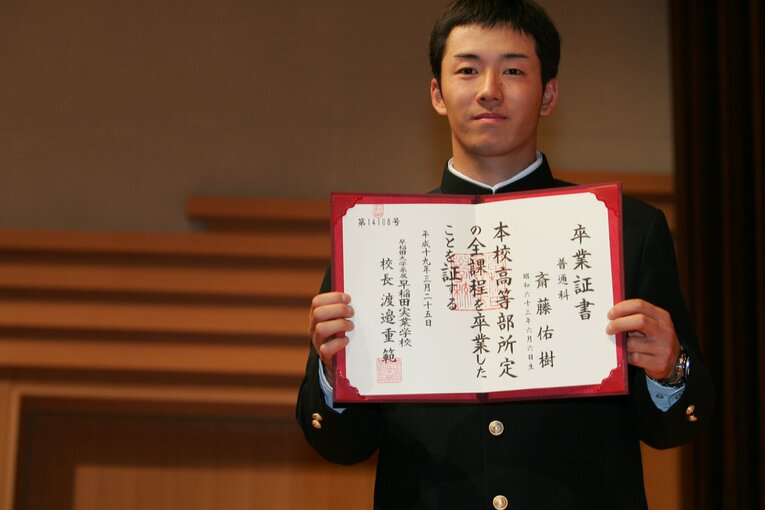 卒業証書
普通科
斎藤佑樹
昭和六十三年六月六日生
本校高等部所定
の全課程を卒業した
ことを証する
平成十九年三月二十五日
早稲田大学系属早稲田実業学校
校長 渡邉重範
第14108号